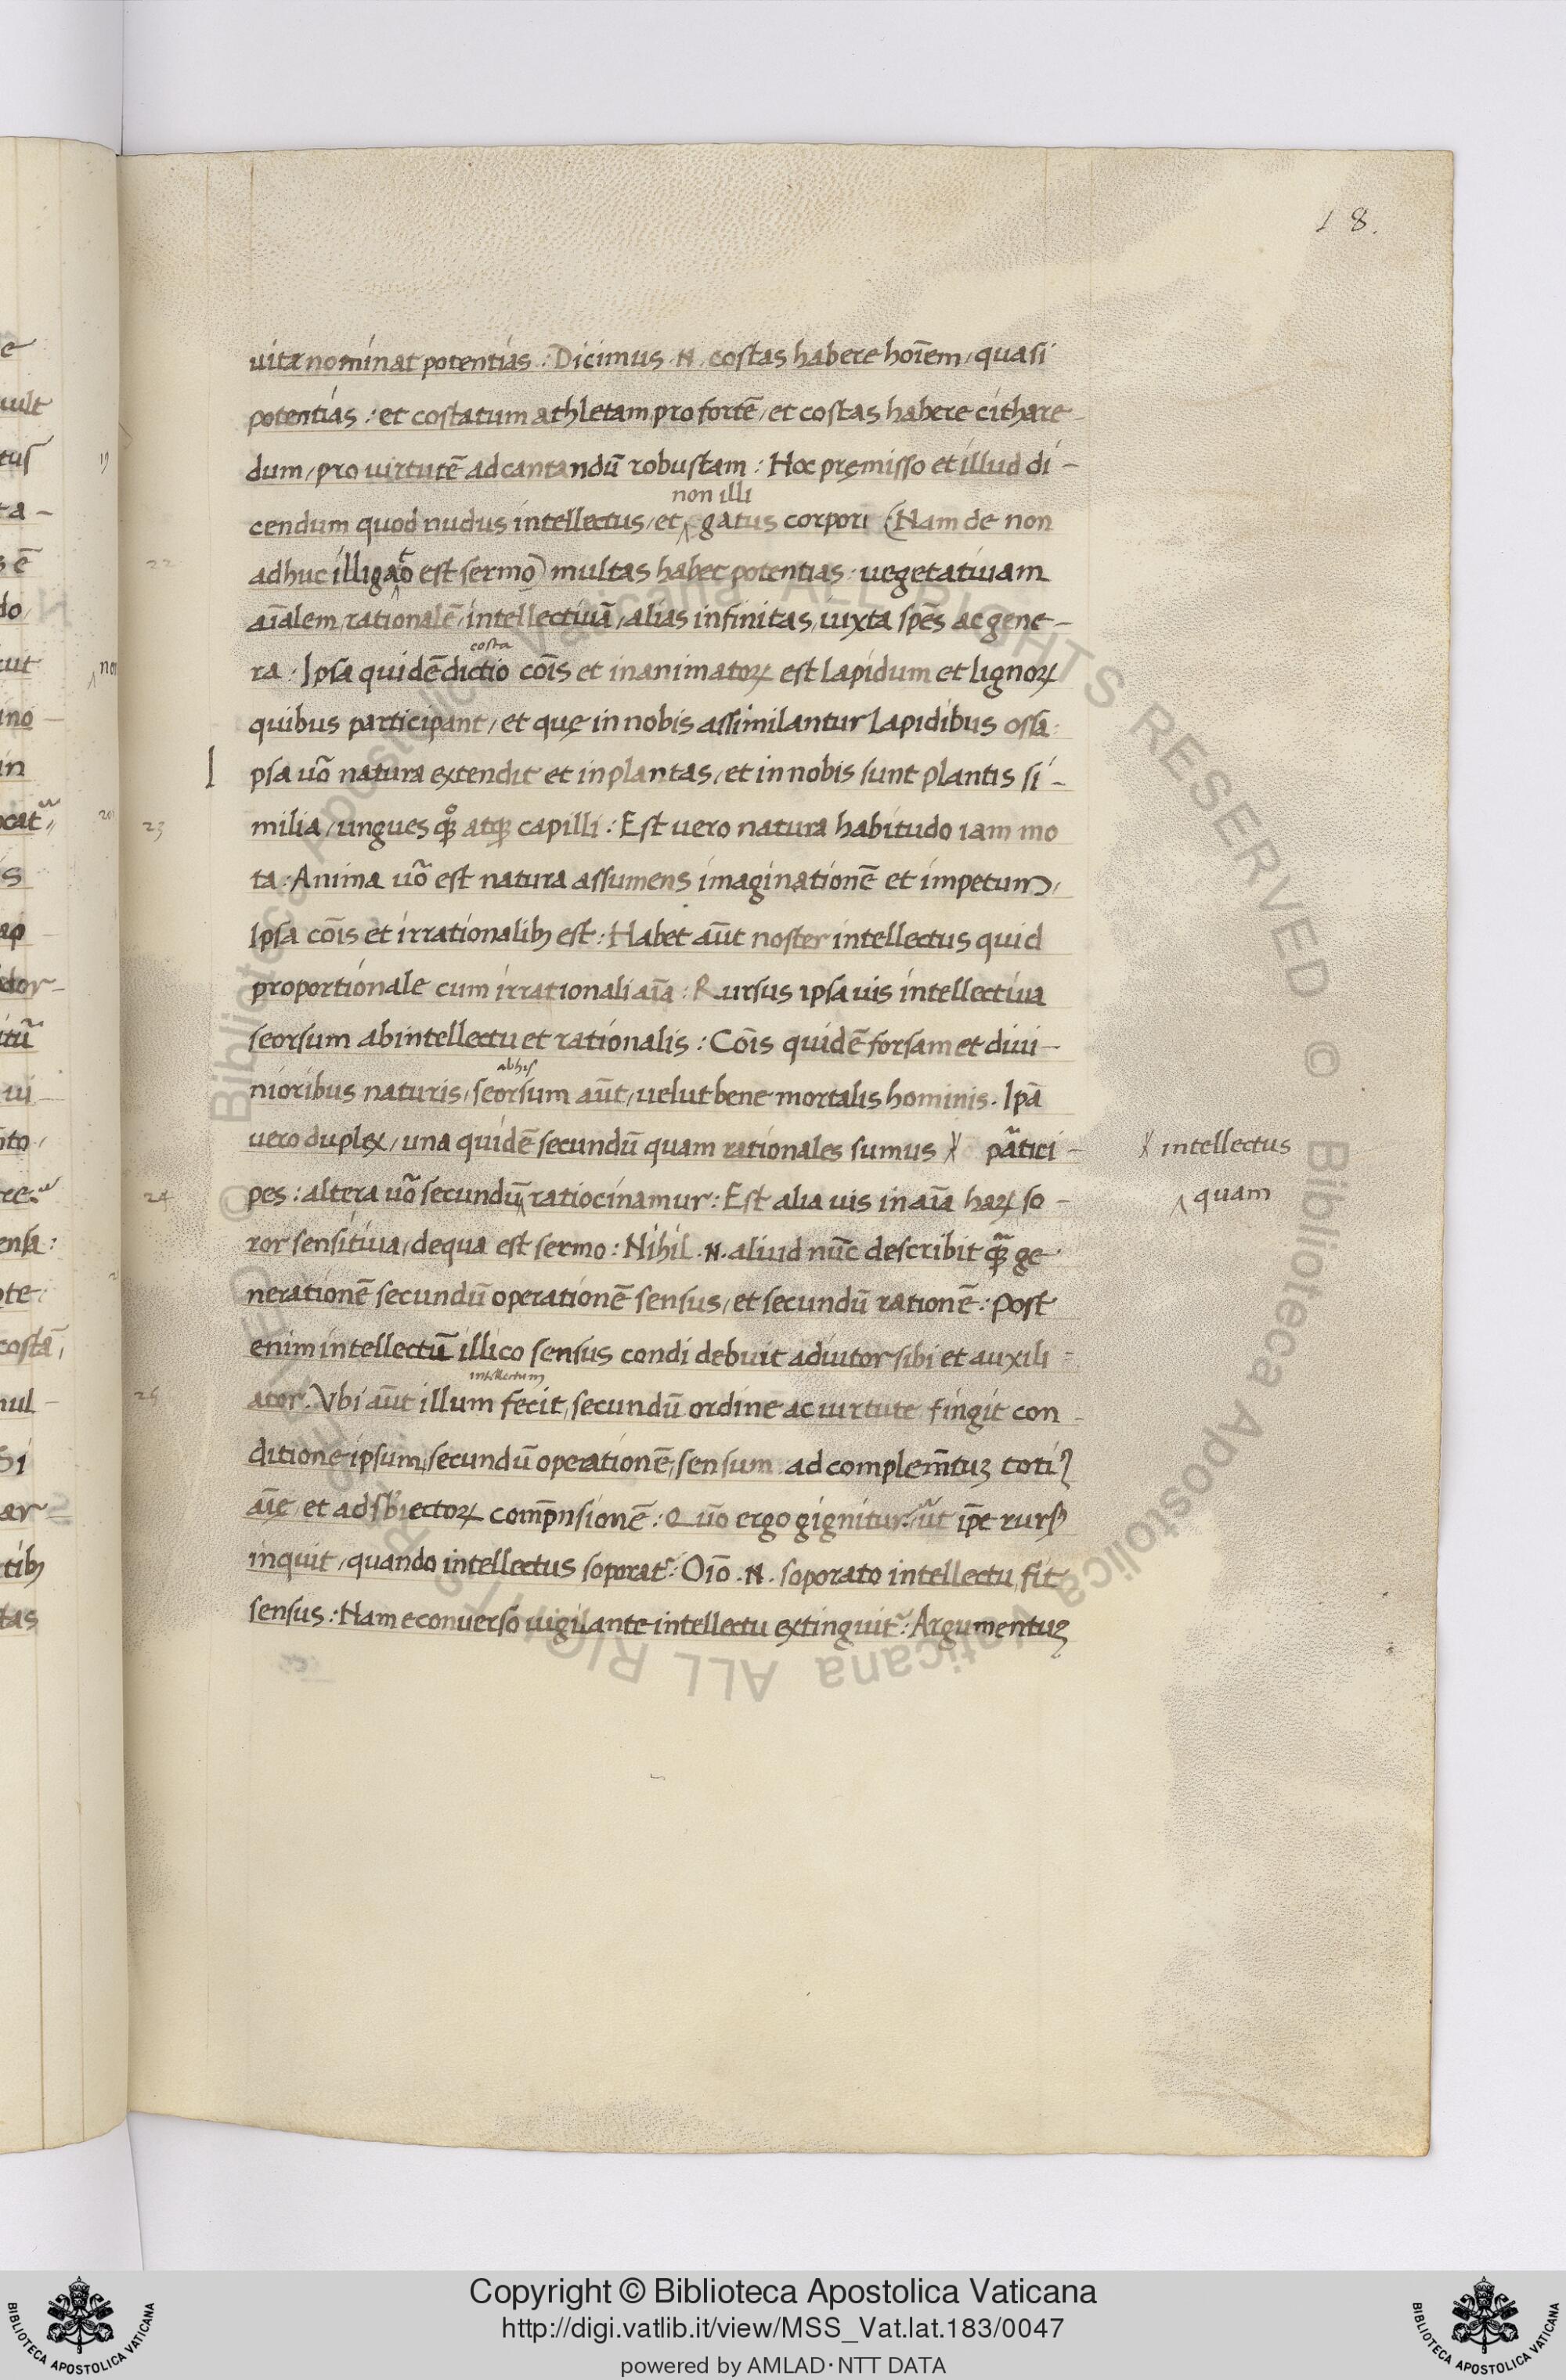 18.
uitæ nominat potentias : Dicimus .N. costas habere hoīem, quasi
potentias : et costatum athletam pro fortē, et costas habere cithare-
dum, pro uirtutē ad cantandū robustam : Hoc pręmisso et illud di-
non illi
cendum quod nudus intellectus, et gatus corpori (Nam de non
22 adhuc illigato est sermo) multas habet potentias : uegetatiuam
aīalem, rationalē, intellectiuā, alias infinitas, iuxta spēs ac gene-
costa
ra : Ipsa quidē dictio cōis et inanimatoꝝ est lapidum et lignoꝝ
quibus participant, et quę in nobis assimilantur lapidibus ossa.
I psa uō natura extendit et in plantas, et in nobis sunt plantis si-
23 milia, ungues qꝫ atqꝫ capilli : Est uero natura habitudo iam mo
ta : Anima uō est natura assumens imaginationē et impetum,
Ipsa cōis et irrationalibꝫ est : Habet aūt noster intellectus quid
proportionale cum irrationali aīa : Rursus ipsa uis intellectiua
seorsum ab intellectu et rationalis : Cōis quidē forsam et diui-
ab his
nioribus naturis, seorsum aūt, uelut bene mortalis hominis. Ipā
uero duplex, una quidē secundū quam rationales sumus pātici-
intellectus
24 pes : altera uō secundū ratiocinamur : Est alia uis in aīa haꝝ so-
quam
ror sensitiua, de qua est sermo : Nihil .N. aliud nūc describit qꝫ̄ ge
nerationē secundū operationē sensus, et secundū rationē : Post
enim intellectū illico sensus condi debuit adiutor sibi et auxili-
intellectum
25 ator. Vbi aūt illum fecit, secundū ordine ac uirtute fingit con-
ditione ipsum, secundū operationē, sensum ad complemētuꝫ totiꝰ
aīę, et ad sbiectoꝝ comp̄nsionē : Q uō ergo gignitur, ūt ip̄e rursꝰ
inquit, quando intellectus soporatr : Oīo .N. soporato intellectu, fit
sensus : Nam econuerso uigilante intellectu extinguitr : Argumentuꝫ
Copyright © Biblioteca Apostolica Vaticana
http://digi.vatlib.it/view/MSS_Vat.lat.183/0047
powered by AMLAD·NTT DATA